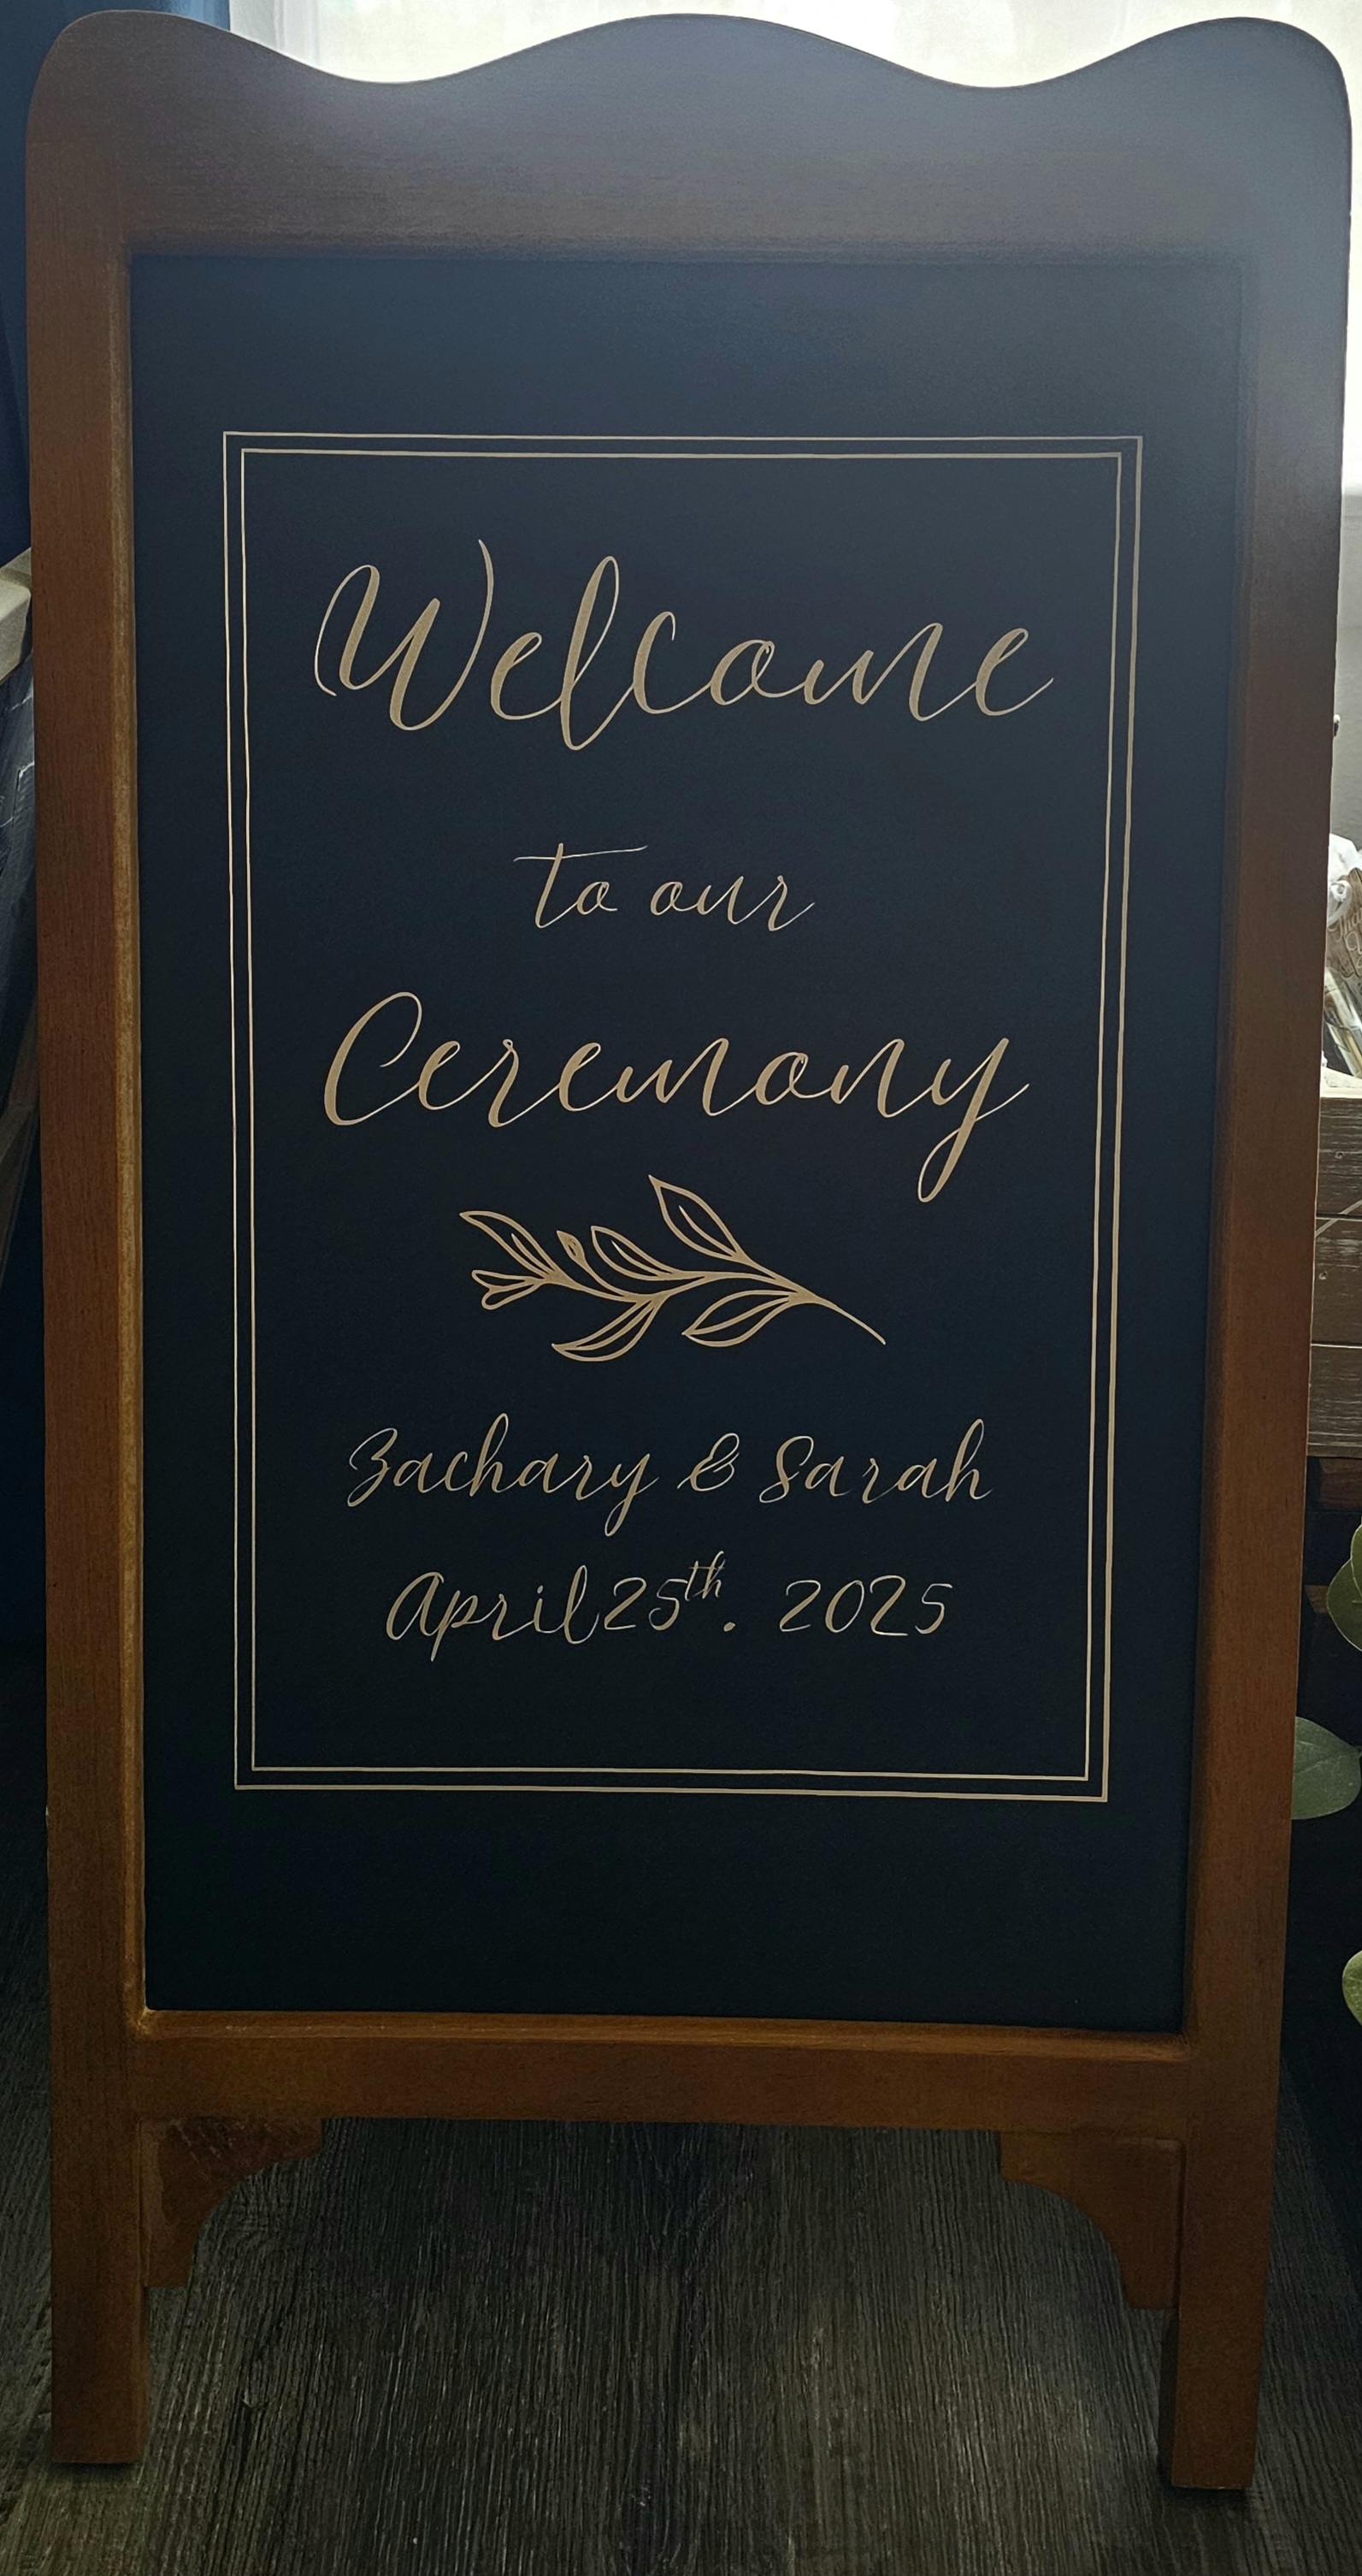 Welcome
to our
Ceremony
Zachary & Sarah
April 25th. 2025